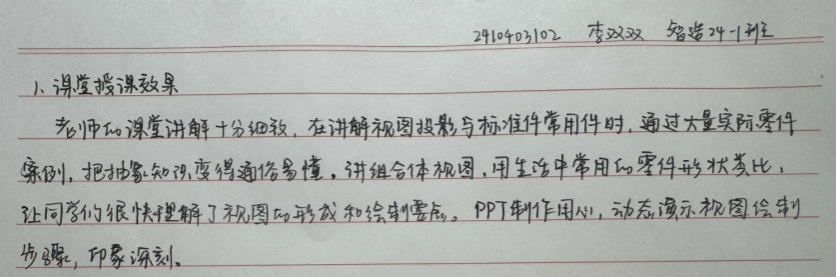 2410403102 李双双 智造24-1班
1、课堂授课效果
老师的课堂讲解十分细致，在讲解视图投影与标准件常用件时，通过大量实际零件
案例，把抽象知识变得通俗易懂。讲组合体视图，用生活中常用的零件形状类比，
让同学们很快理解了视图的形成和绘制要点。PPT制作用心，动态演示视图绘制
步骤，印象深刻。